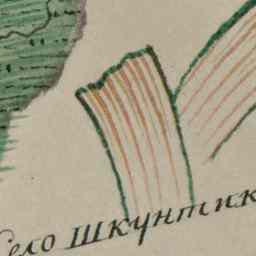 Село Шкунтик